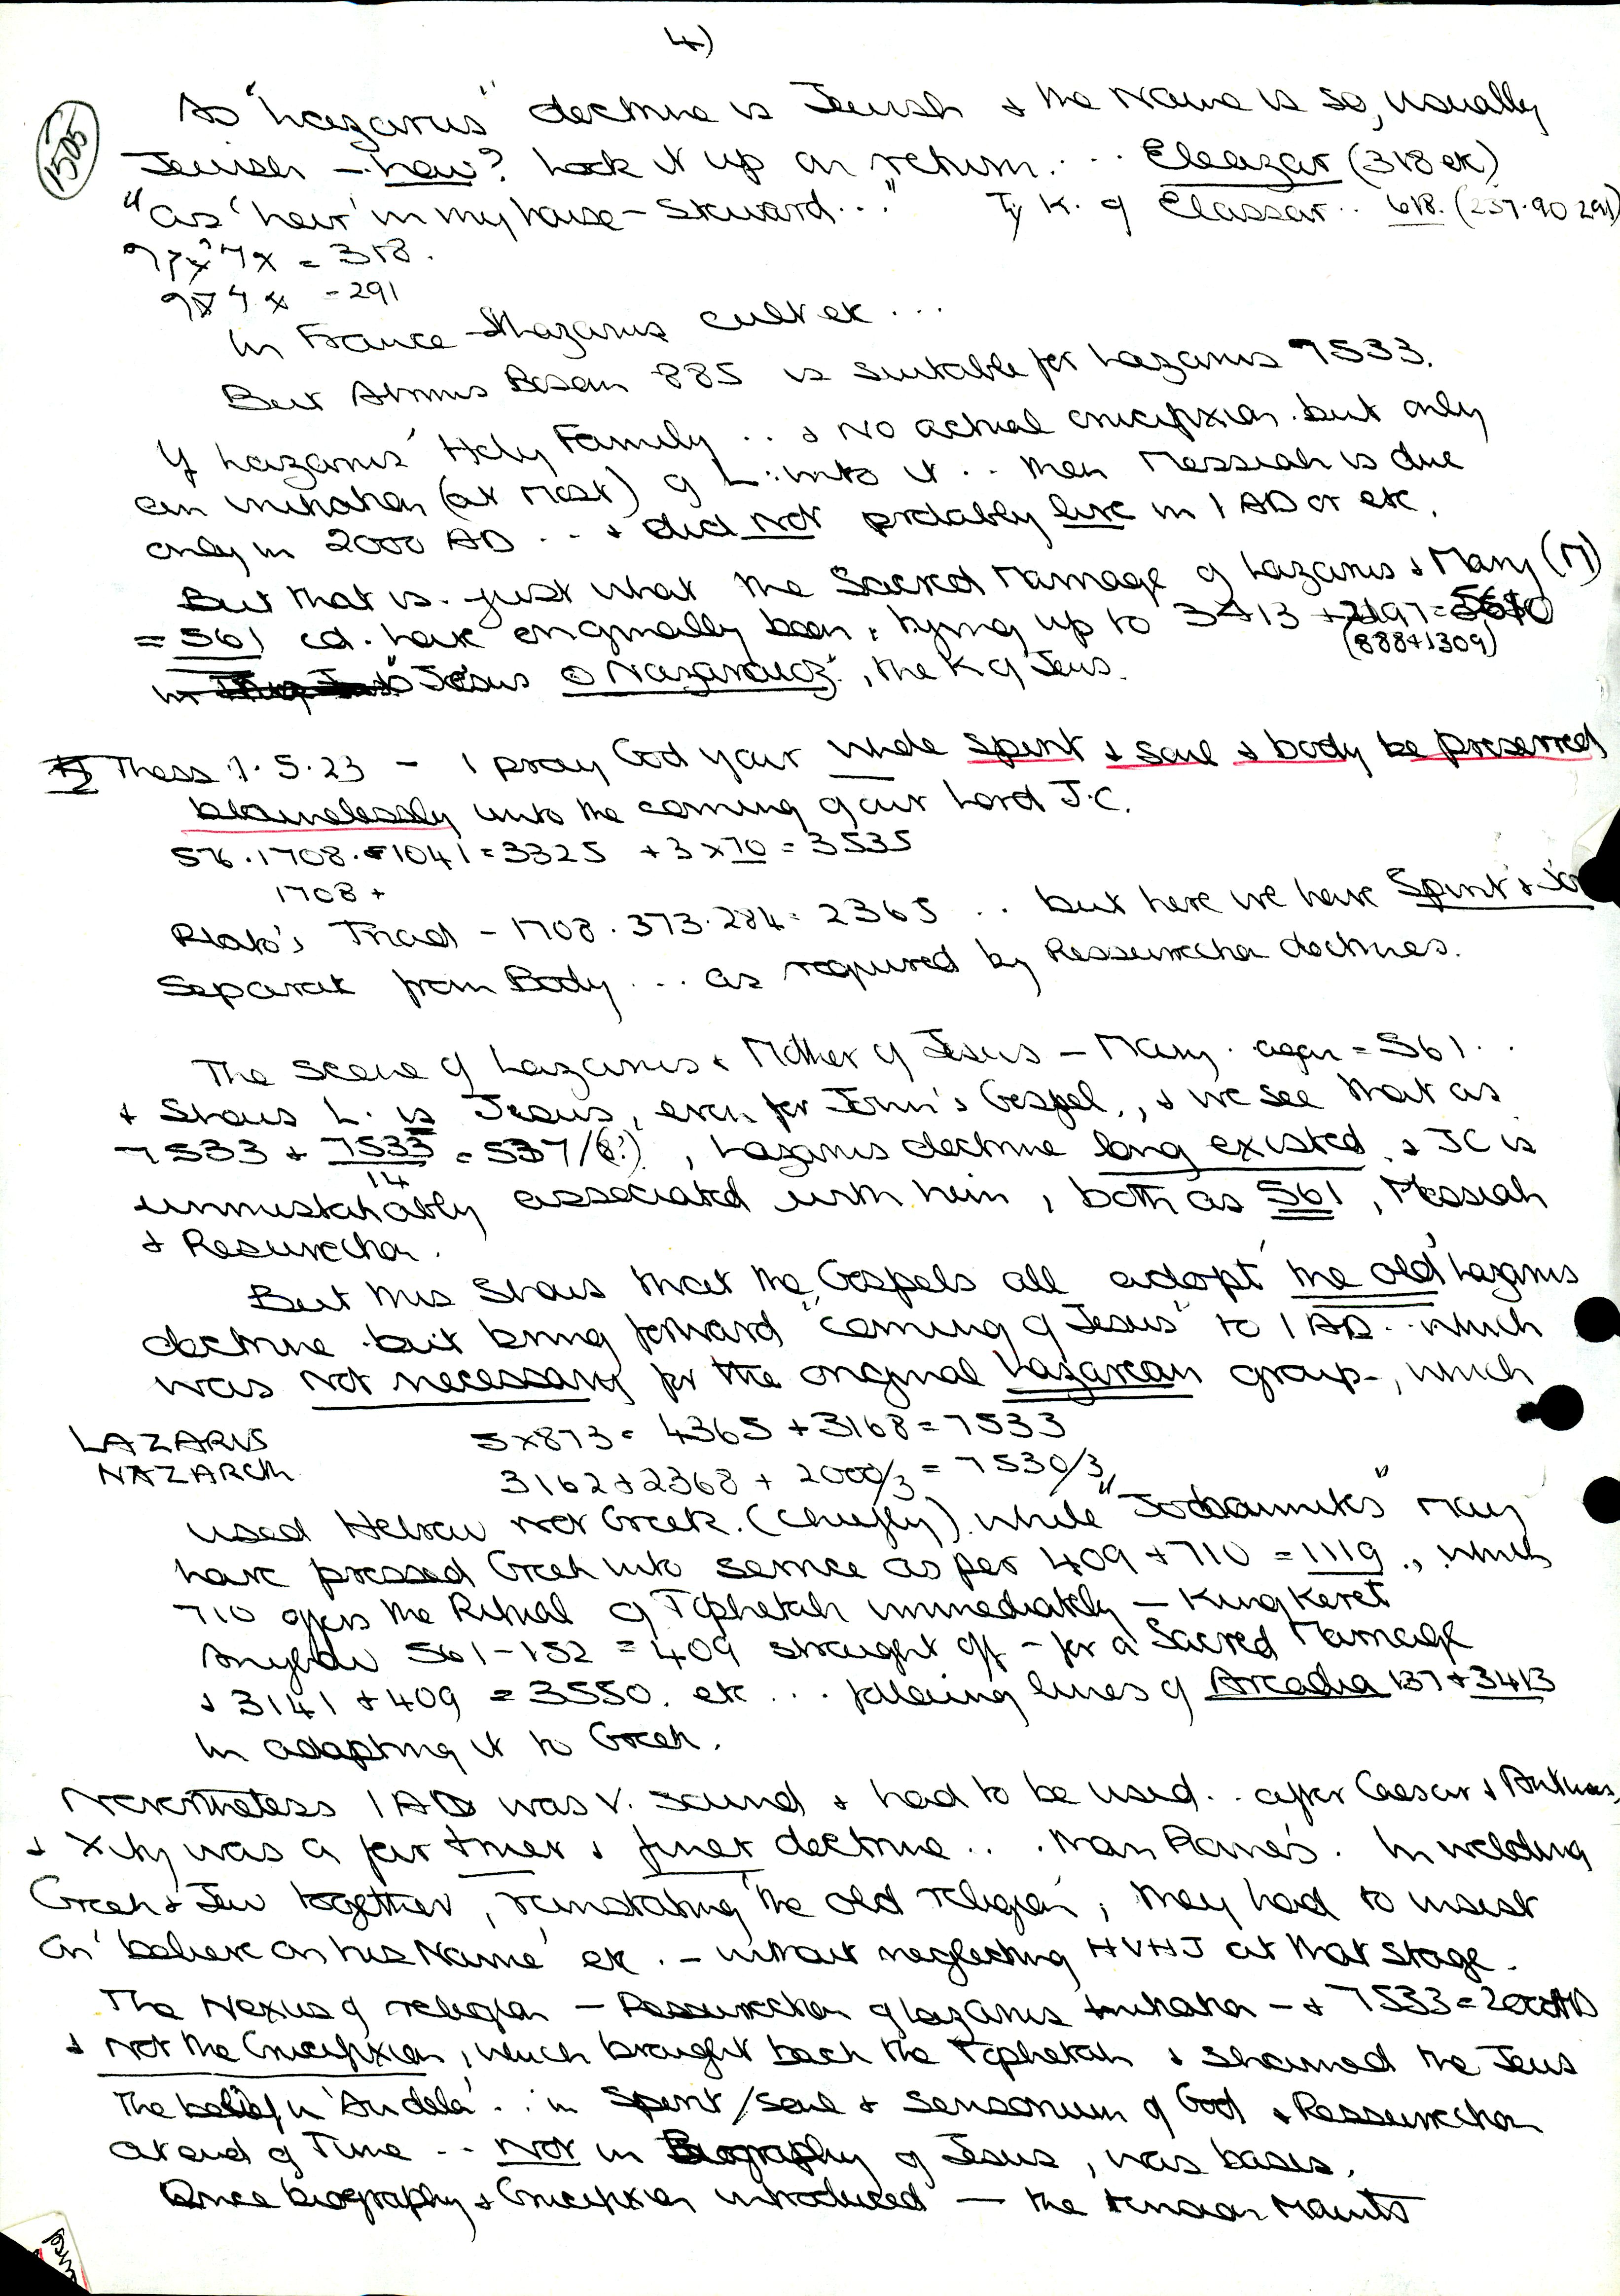 4)
1505
As "Lazarus" doctrine is Jewish & the Name is so, usually
Jewish – how? Look it up on return... Eleazar (318 etc)
"as 'heir' in my house – Steward..." Ty K. of Elassar.. 618. (237.90 291)
= 318.
= 291
In France – St Lazarus cult etc ...
But Annus 885 is suitable for Lazarus 7533.
If Lazarus' Holy Family .. & No actual crucifixion but only
an initiation (at most) of L. into it .. then Messiah is due
only in 2000 AD ... & did not probably live in 1 AD or etc.
But that is just what the Sacred Marriage of Lazarus & Mary (M)
= 561 cd. have originally been, tying up to 3413 + 2197 = 5610
(888+1309)
in "Jesus o Nazaraios", the K of Jews.
Thess 1.5.23 – I pray God your whole spirit & soul & body be preserved
blamelessly unto the coming of our Lord J.C.
576.1708.1041 = 3325 + 3 x 70 = 3535
1708 +
Plato's Triad – 1708.373.284 = 2365 .. but here we have Spirit &
Separate from Body ... as required by Ressurrection doctrines.
The scene of Lazarus & Mother of Jesus – Mary again = 561..
& Shows L. is Jesus, even for John's Gospel, & we see that as
7533 + 7533 = 537/(8!), Lazarus doctrine long existed & JC is
14
unmistakably associated with him, both as 561, Messiah
& Resurrection.
But this shows that the Gospels all adopt 'the old' Lazarus
doctrine but bring forward "coming of Jesus" to 1 AD.. which
was not necessary for the original Lazarean group –, which
LAZARUS 5x873 = 4365 + 3168 = 7533
NAZARETH 3162 + 2368 + 2000/3 = 7530/3
used Hebrew not Greek. (chiefly) while "Johannites" may
have pressed Greek into service as per 409 + 710 = 1119., which
710 gives the Ritual of Tophetah immediately – King Keret
Anyhow 561 – 152 = 409 straight off – for a Sacred Marriage
& 3141 + 409 = 3550. etc ... following lines of Arcadia 137 + 3413
in adapting it to Greek.
Nevertheless 1 AD was v. sound & had to be used .. after Caesar &
& Xity was a far truer & finer doctrine ... than Rome's. In welding
Greek & Jew together, reinstating 'the old religion', they had to insist
on 'believe on his Name' etc. – without neglecting HVHJ at that stage.
The Nexus of religion – Ressurrection of Lazarus initiation – & 7533 = 2000AD
& not the Crucifixion, which brought back the Tophetah & shamed the Jews
The belief in 'Au dela'.. in Spirit/soul & Sensorium of God & Ressurrection
at end of Time .. Not in Biography of Jesus, was basis.
Once biography & Crucifixion introduced – the tension mounts